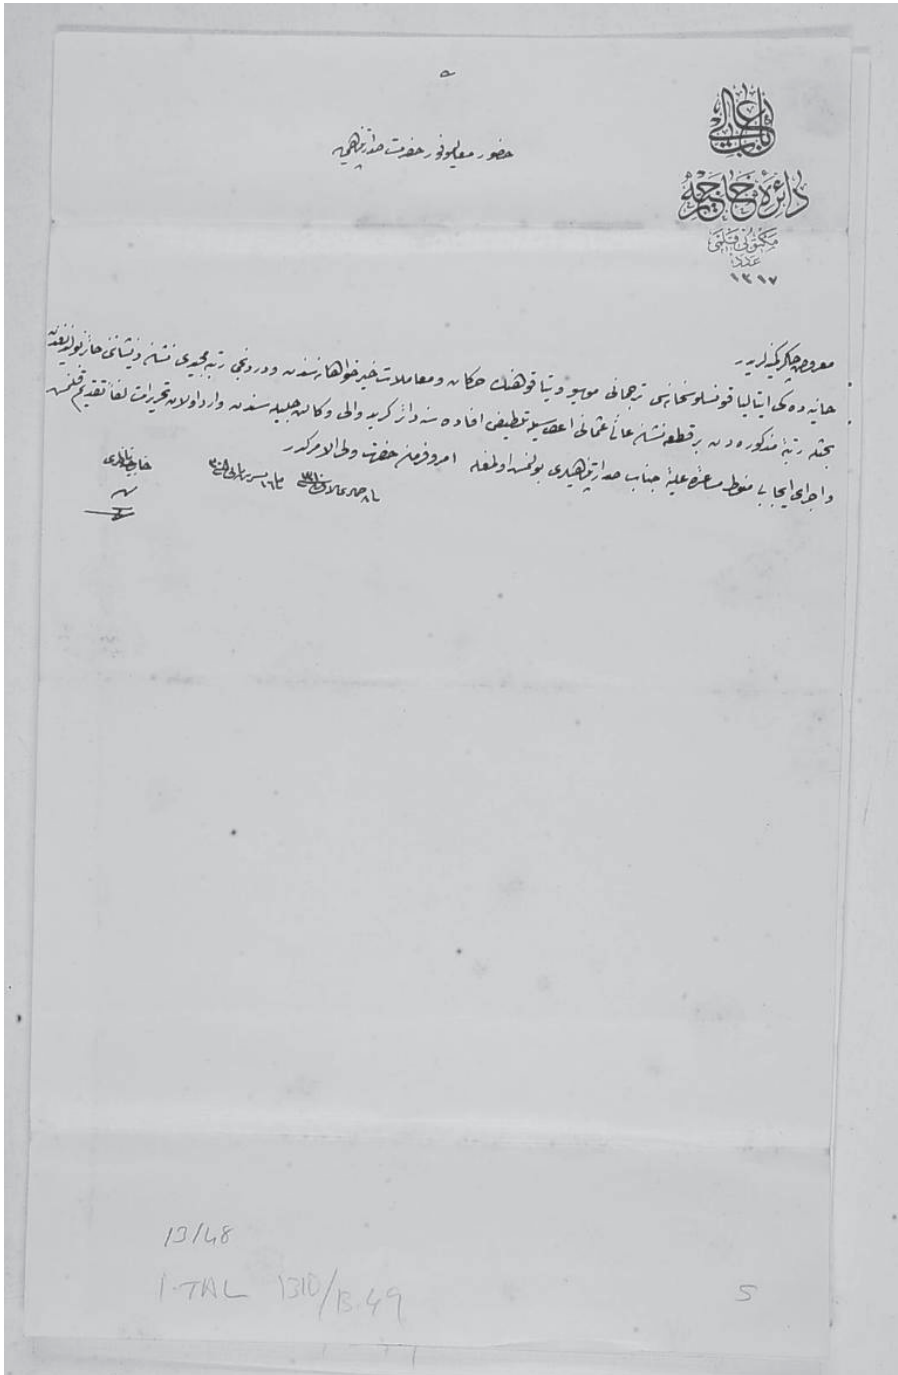 باب عالی
دائرۀ خارجیه
مكتوبی قلمی
عدد
١٣١٧
حضور معالیموفور حضرت صدارتپناهی
معروض چاکر کمینه‌لریدر
حانیه ده کی ایتالیا قونسلوسخانه سی ترجمانی موسیو حرکات و معاملات خیرخواهانه سندن و دردنجی رتبه مجیدی نشان ذیشاننی حائز بولندیغندن
بحثله رتبۀ مذکوره دن بر قطعه نشان عالئ عثمانی اعطاسیله تلطیفی افاده سنه دائر کرید والی وکالت جلیله سندن وارد اولان تحریرات لفاً تقدیم قلنمش
و اجرای ایجابی منوط مساعدۀ علیۀ جناب صدارتپناهیلری بولنمش اولمغله امر و فرمان حضرت ولی الامرکدر
خارجیه ناظری
13/48
İ.TAL 1310/B.49
5